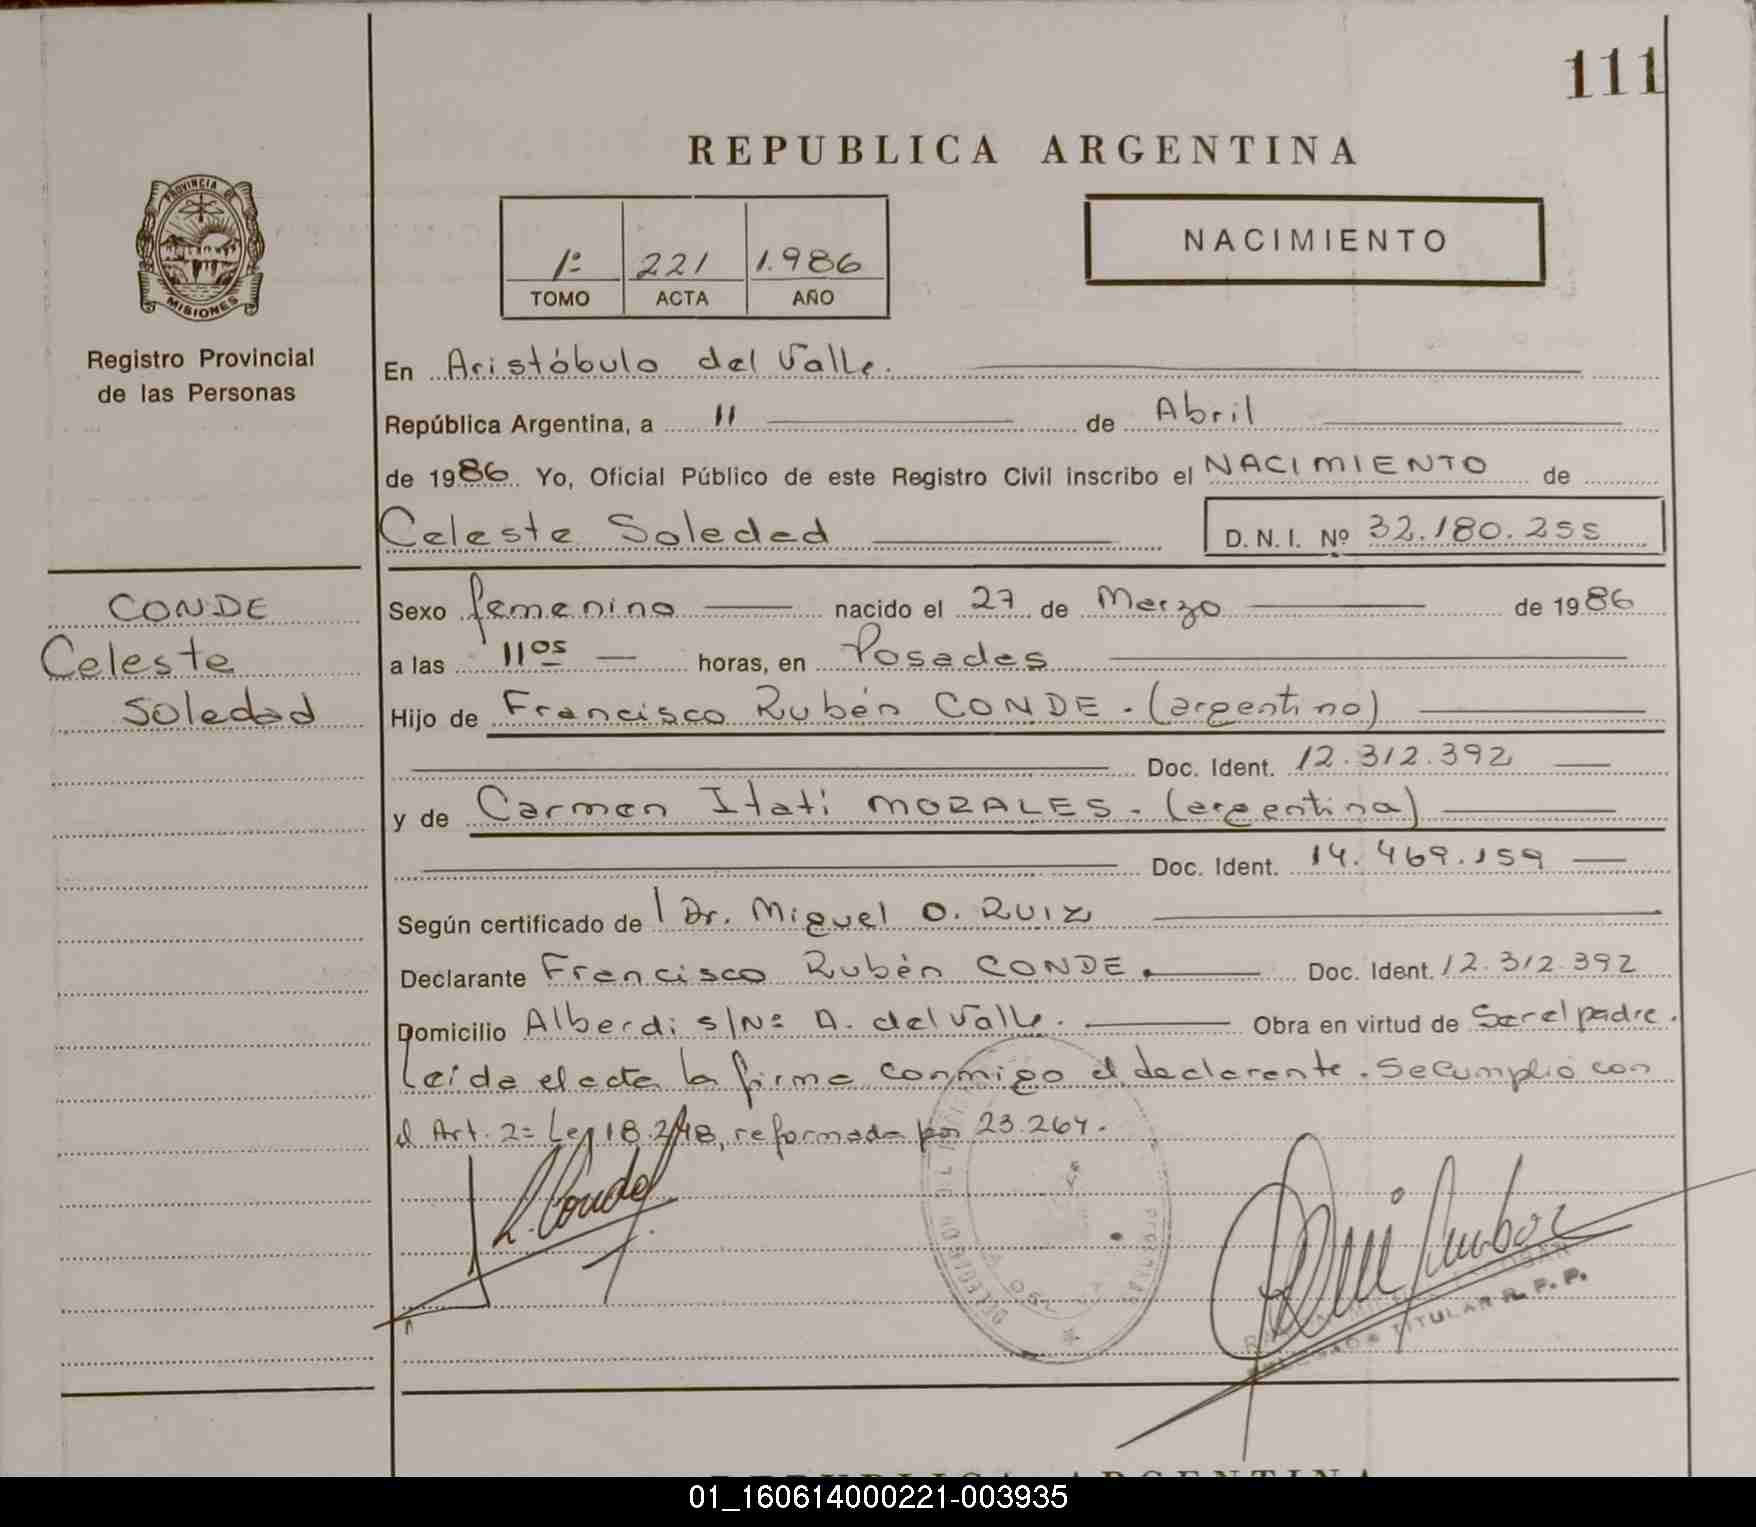 111
REPUBLICA ARGENTINA
PROVINCIA DE
MISIONES
Registro Provincial
de las Personas
1º 221 1.986
TOMO ACTA AÑO
NACIMIENTO
En Aristóbulo del Valle.
República Argentina, a 11 de Abril
de 1986 Yo, Oficial Público de este Registro Civil inscribo el NACIMIENTO de
Celeste Soledad D.N.I. Nº 32.180.255
CONDE
Celeste
Soledad
Sexo femenino nacido el 27 de Marzo de 1986
a las 11 05 horas, en Posadas
Hijo de Francisco Rubén CONDE. (argentino)
Doc. Ident. 12.312.392
y de Carmen Itati MORALES. (argentina)
Doc. Ident. 14.469.159
Según certificado de Dr. Miguel O. RUIZ
Declarante Francisco Rubén CONDE. Doc. Ident. 12.312.392
Domicilio Alberdi s/Nº A. del Valle. Obra en virtud de Ser el padre.
Leída el acta la firma conmigo el declarante. Se cumplió con
el Art. 2º Ley 18.248, reformada por 23.264.
TITULAR R. P. P.
REPUBLICA ARGENTINA
01_160614000221-003935